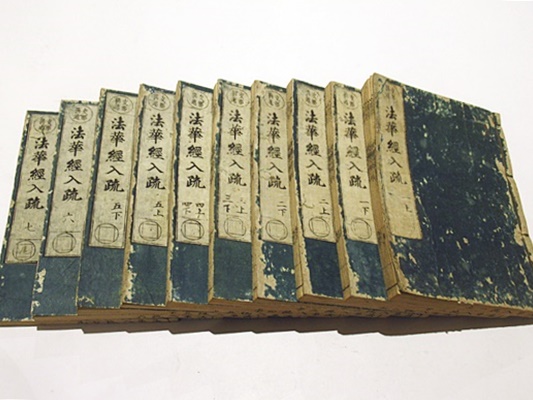 法華經入疏 一上
法華經入疏 一下
法華經入疏 二上
法華經入疏 二下
法華經入疏 三上
三下
法華經入疏 四上
四下
法華經入疏 五上
法華經入疏 五下
法華經入疏 六
法華經入疏 七